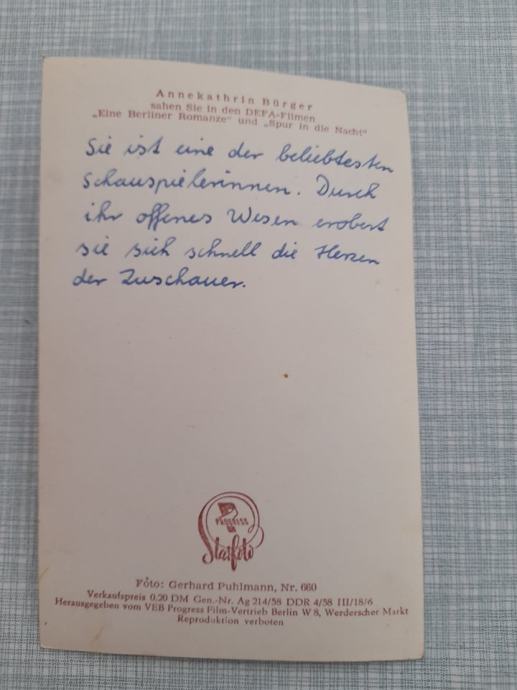 Annekathrin Bürger
sahen Sie in den DEFA-Filmen
„Eine Berliner Romanze" und „Spur in die Nacht"
Sie ist eine der beliebtesten
Schauspielerinnen. Durch
ihr offenes Wesen erobert
sie sich schnell die Herzen
der Zuschauer.
PROGRESS
Starfoto
Foto: Gerhard Puhlmann, Nr. 660
Verkaufspreis 0,20 DM Gen.-Nr. Ag 214/58 DDR 4/58 III/18/6
Herausgegeben vom VEB Progress Film-Vertrieb Berlin W 8, Werderscher Markt
Reproduktion verboten